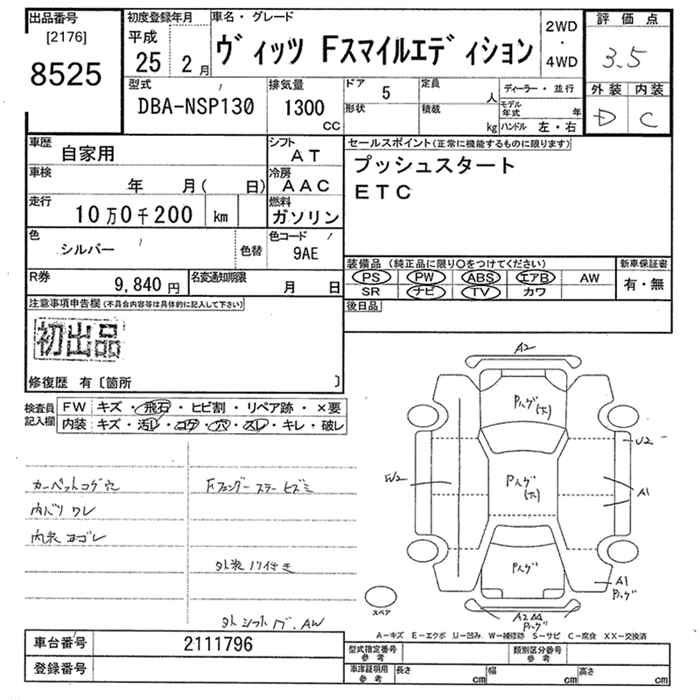 出品番号
[2176]
8525
初度登録年月
平成
25 2月
車名・グレード
ヴィッツ Fスマイルエディション
2WD
・
4WD
評価点
3.5
外装 内装
D C
型式
DBA-NSP130
排気量
1300
cc
ドア 5
形状
定員 人
積載 kg
ディーラー・並行
モデル年式 年
ハンドル 左・右
車歴 自家用
シフト AT
車検 年 月( 日)
冷房 AAC
走行 10万0千200 km
燃料 ガソリン
色 シルバー 色替
色コード 9AE
R券 9,840円
名変通知期限 月 日
セールスポイント(正常に機能するものに限ります)
プッシュスタート
ETC
装備品 (純正品に限り○をつけてください)
PS PW ABS エアB AW
SR ナビ TV カワ
新車保証書
有・無
後日品
注意事項申告欄(不具合内容等は具体的に記入して下さい)
初出品
修復歴 有〔箇所 〕
検査員記入欄
FW キズ・飛石・ヒビ割・リペア跡・×要
内装 キズ・汚レ・コゲ・穴・スレ・キレ・破レ
カーペットコゲ穴
内バリ ワレ
内装 ヨゴレ
外装 ハリ付き
A2
Pハゲ(大)
U2
W2
Pハゲ(大)
A1
Pハゲ
A1
Pハゲ
A2
Pハゲ
スペア
A−キズ E−エクボ U−凹み W−補修跡 S−サビ C−腐食 XX−交換済
車台番号 2111796
登録番号
型式指定番号 参考
類別区分番号 参考
車庫証明用 参考
長さ cm
幅 cm
高さ cm